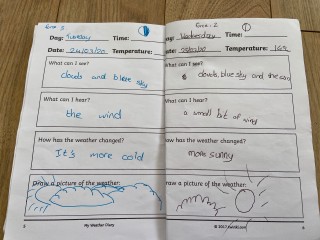 Day: Tuesday Time:
Date: 24/03/20 Temperature:
What can I see?
clouds and blue sky
What can I hear?
the wind
How has the weather changed?
It's more cold
Draw a picture of the weather:
5
My Weather Diary
ay: Wednesday Time:
ate: Temperature:
What can I see?
clouds, blue sky and the sun
What can I hear?
a small bit of wind
ow has the weather changed?
more sunny
raw a picture of the weather:
6